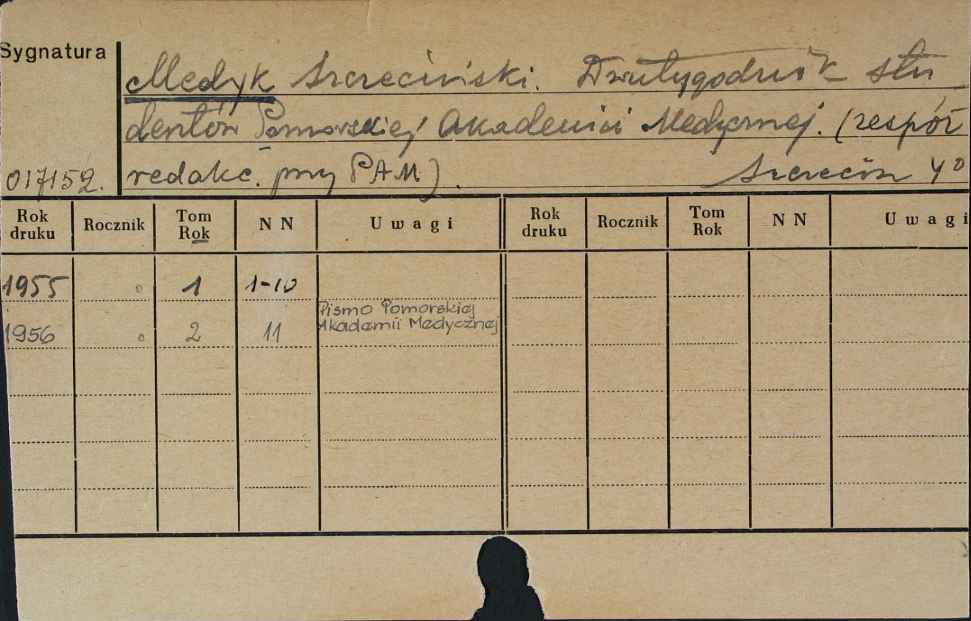 Sygnatura
Medyk Szczeciński. Dwutygodnik stu
dentów Pomorskiej Akademii Medycznej. (zespół
017152. redakc. przy PAM). Szczecin 4°
Rok druku Rocznik Tom Rok N N Uwagi Rok druku Rocznik Tom Rok N N Uwagi
1955 1 1-10
1956 2 11 Pismo Pomorskiej
Akademii Medycznej